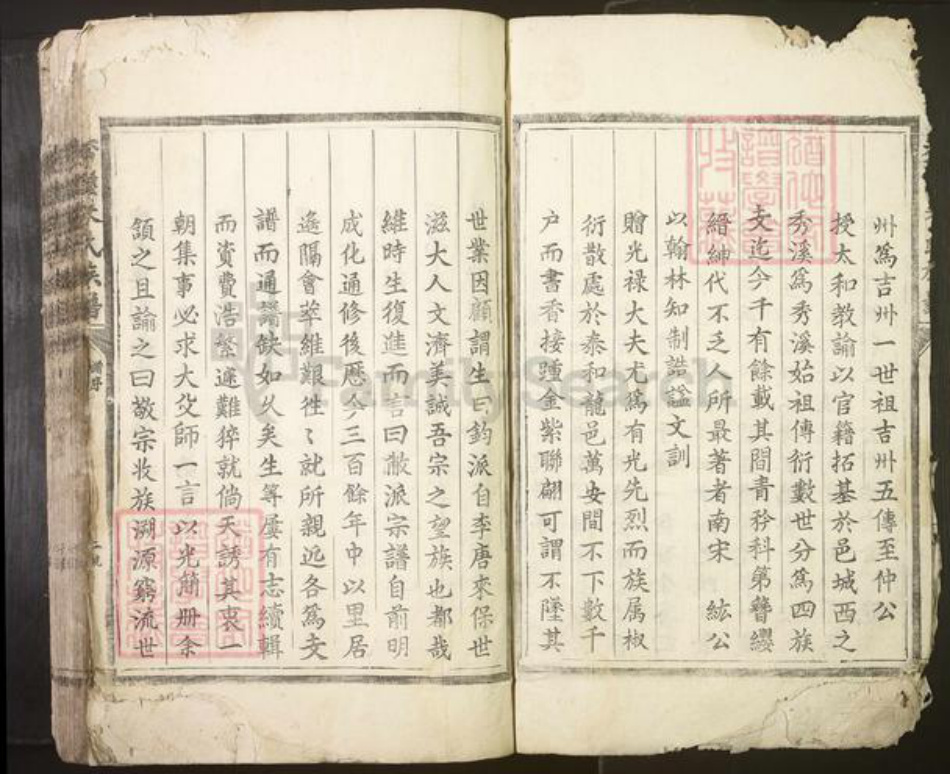 州爲吉州一世祖吉州五傳至仲公
授太和教諭以官籍拓基於邑城西之
秀溪爲秀溪始祖傳衍數世分爲四族
支迄今千有餘載其間青矜科第簪纓
縉紳代不乏人所最著者南宋 紘公
以翰林知制誥諡文訓
贈光禄大夫尤爲有光先烈而族属椒
衍散處於泰和龍邑萬安間不下數千
户而書香接踵金紫聯翩可謂不墜其
世業因顧謂生曰鈞派自李唐來保世
滋大人文濟美誠吾宗之望族也都哉
維時生復進而言曰敝派宗譜自前明
成化通修後歷今三百餘年中以里居
遙隔會萃維艱徃〻就所親近各爲支
譜而通譜缺如久矣生等屢有志續輯
而資費浩繁遽難猝就倘天誘其衷一
朝集事必求大父師一言以光簡册余
頷之且諭之曰敬宗收族溯源窮流世
氏族譜
FamilySearch